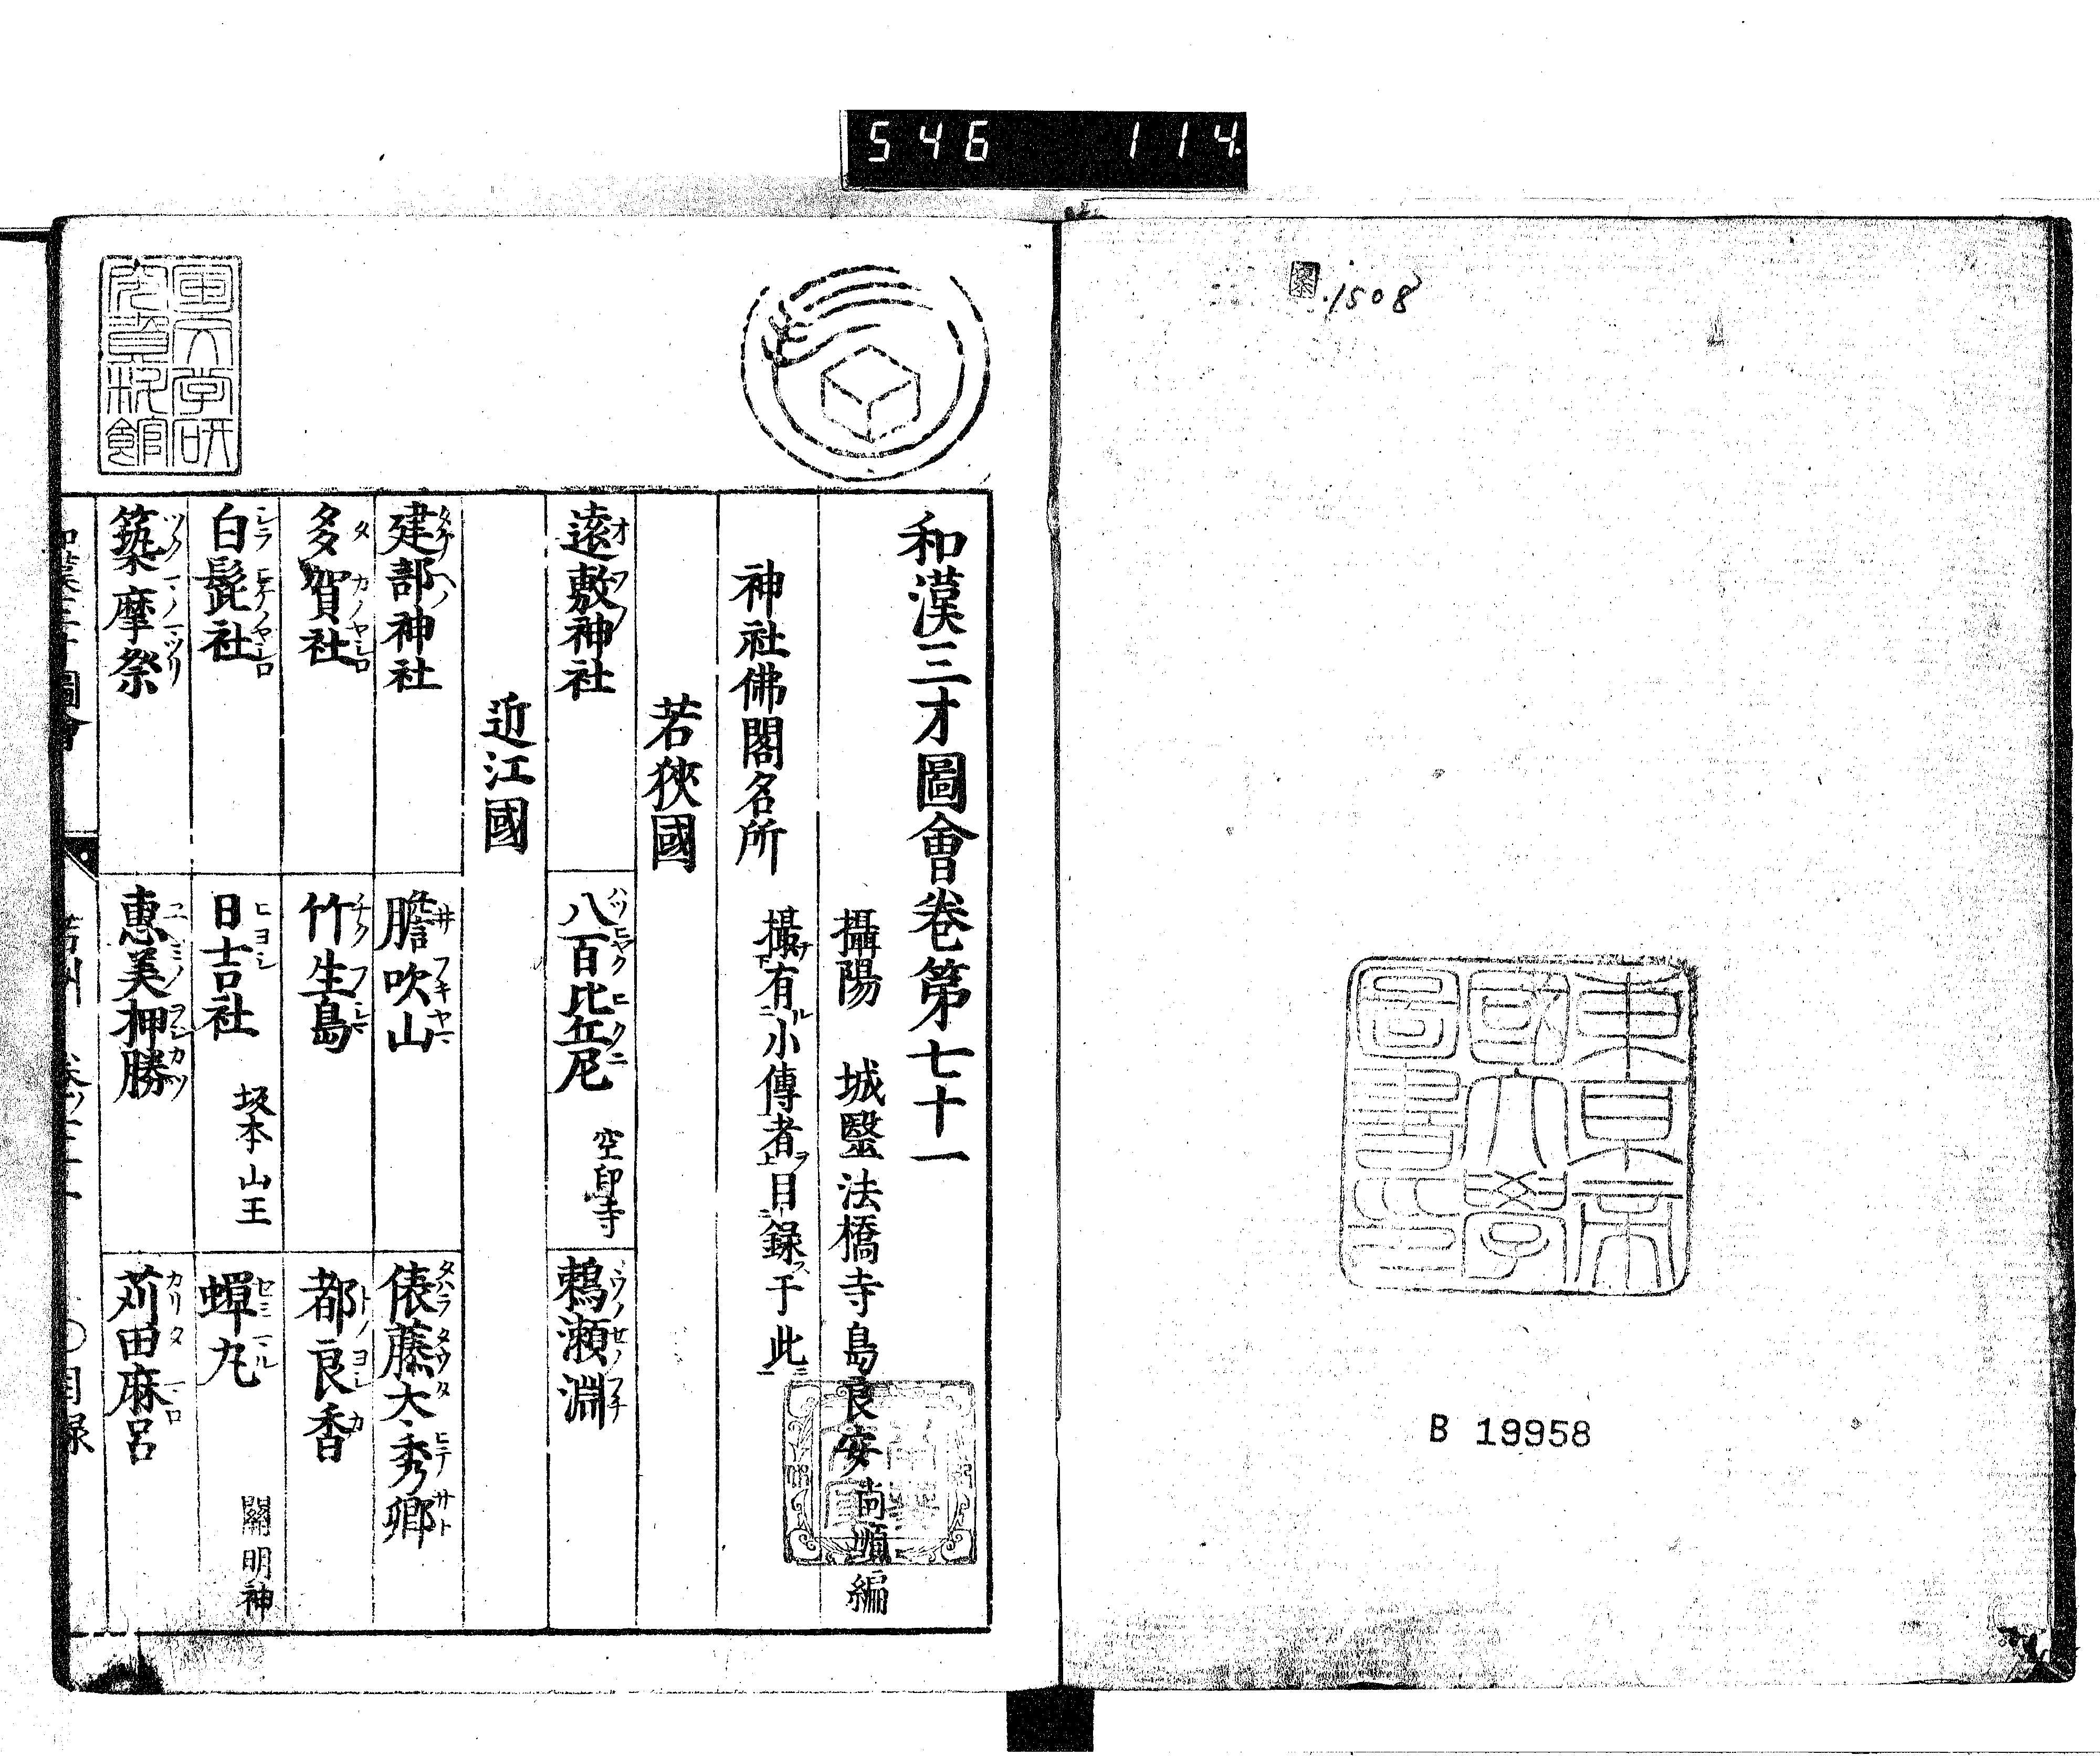 546 114
1508
東京帝
國大學
圖書印
B 19958
和漢三才圖會卷第七十一
攝陽 城醫法橋寺島良安尚順編
神社佛閣名所 撮有小傳者目録于此
若狹國
遠敷神社 八百比丘尼 空印寺 鵜瀬淵
近江國
建部神社 膽吹山 俵藤太秀郷
多賀社 竹生島 都良香
白髭社 日吉社 坂本山王 蟬丸 關明神
築摩祭 惠美押勝 苅田麻呂